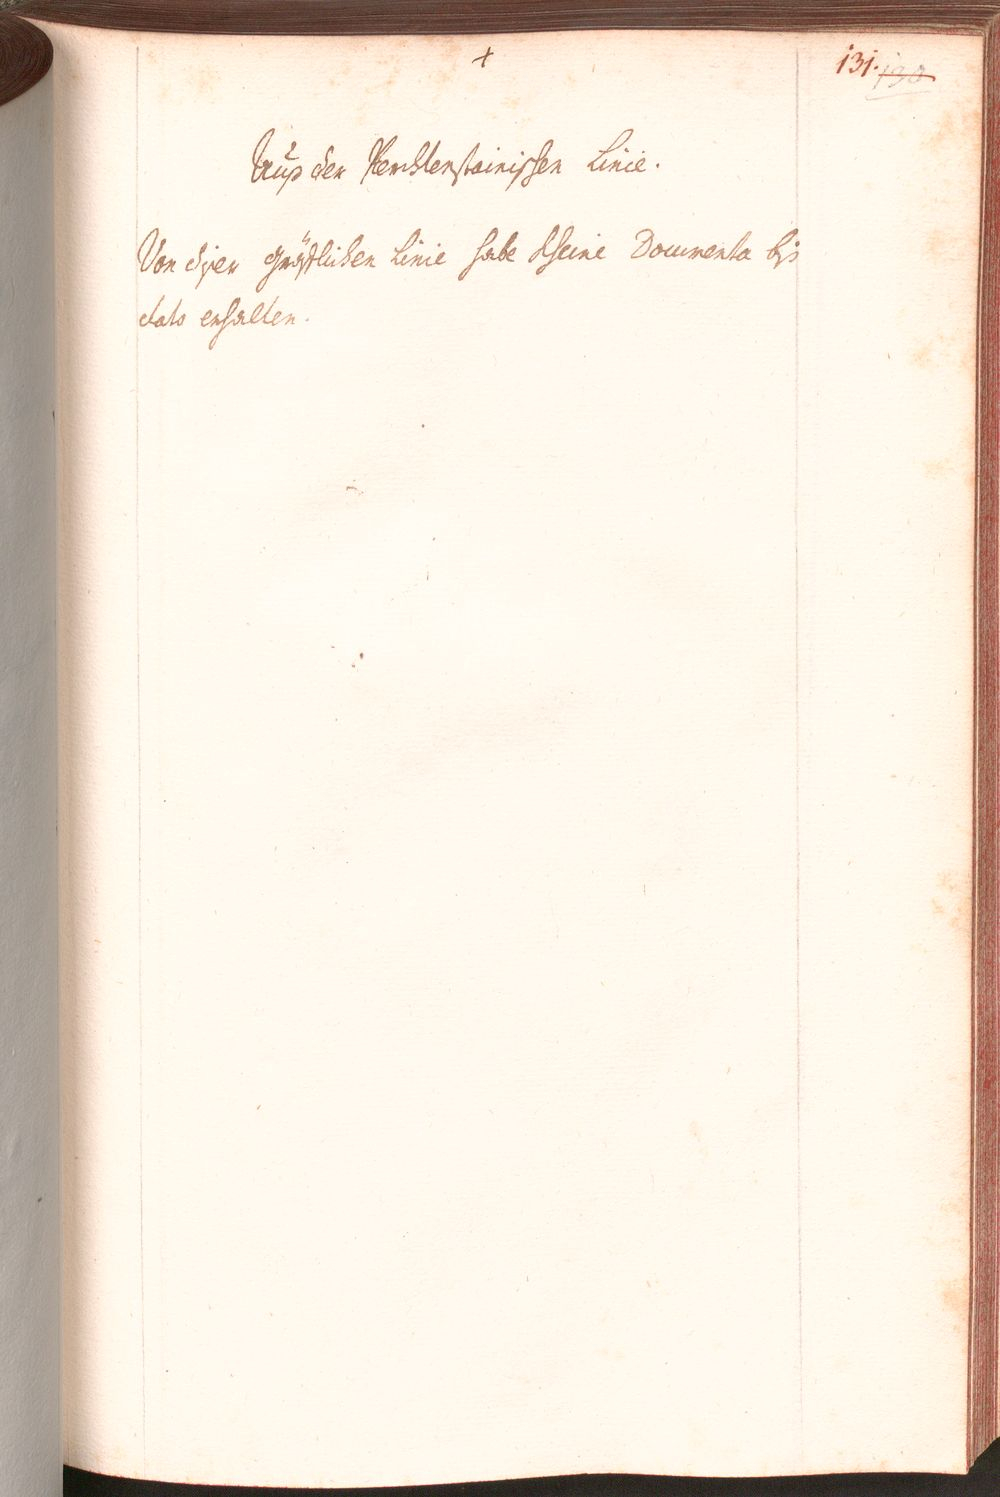 +
131. 130
Auß der Perchtenstainischen Linie.
Von dißer gräfflichen Linie habe kheine Documenta biß
dato erhalten.